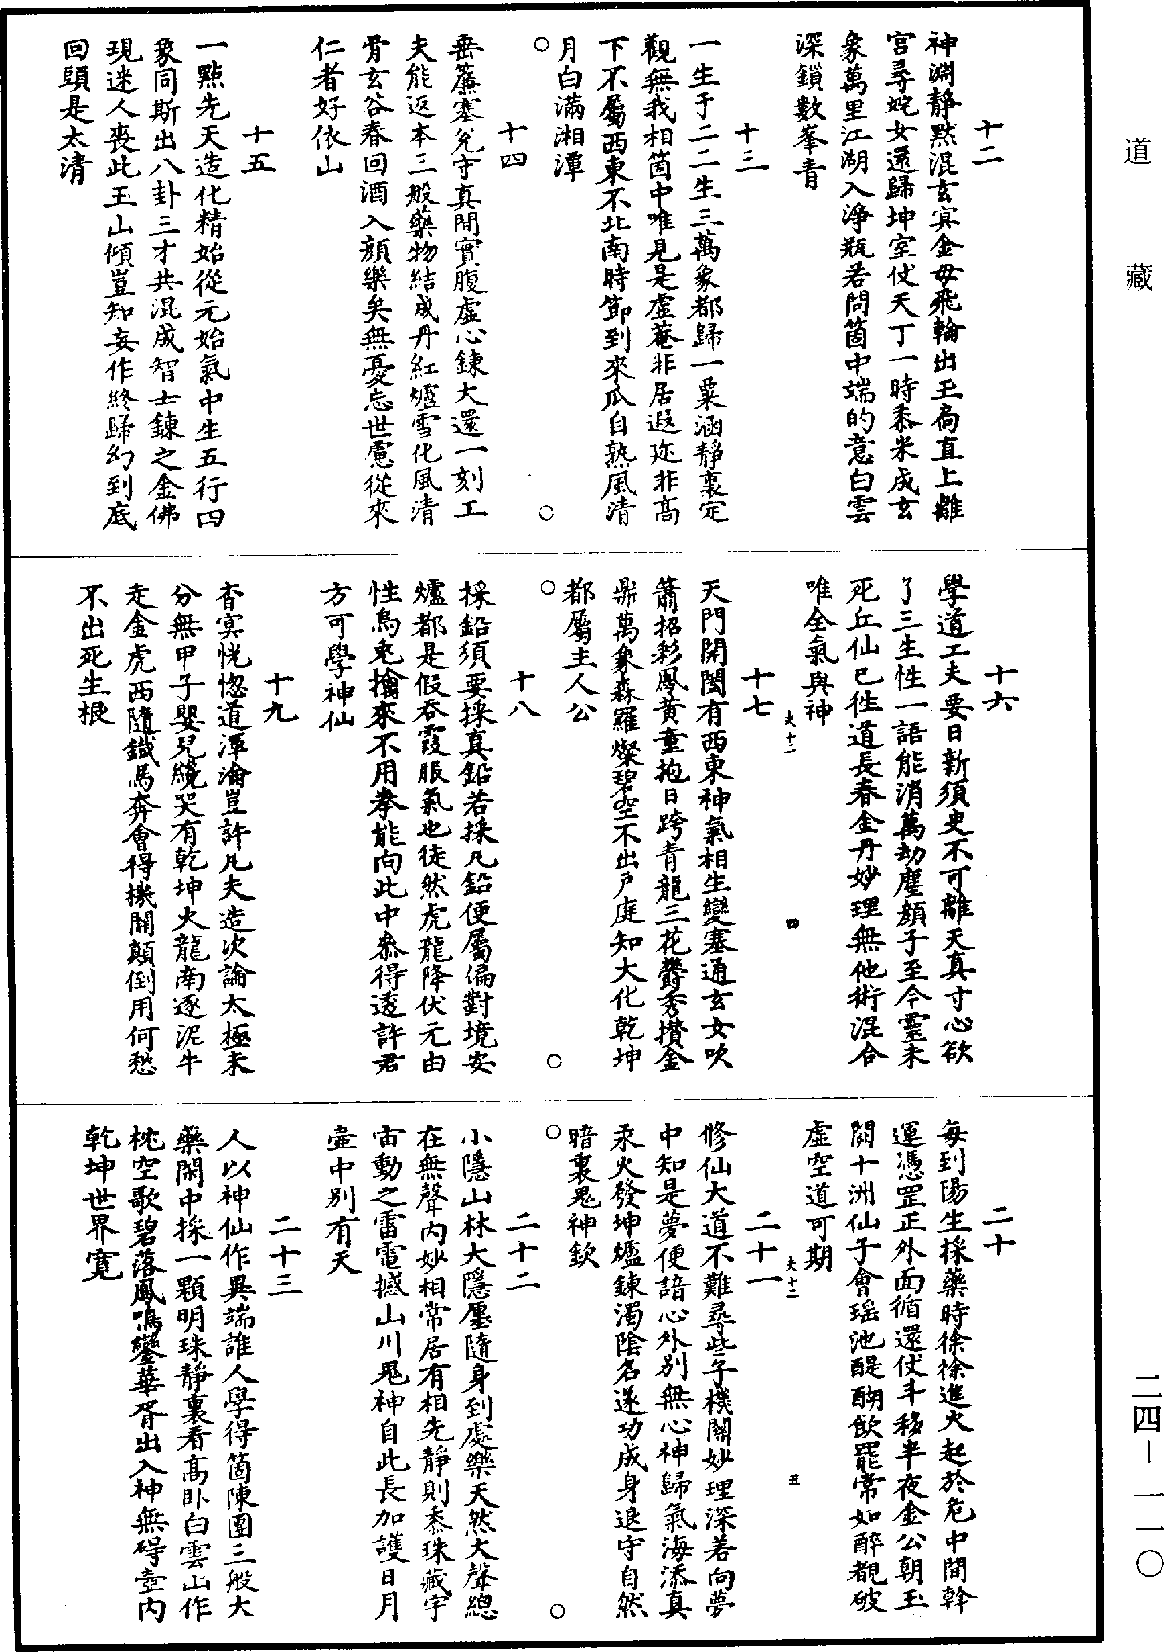 道藏
十二
神淵靜默混玄冥金母飛輪出玉扃直上離
宮尋姹女還歸坤室仗天丁一時黍米成玄
象萬里江湖入淨瓶若問箇中端的意白雲
深鎖數峯青
十三
一生于二二生三萬象都歸一粟涵靜裏定
觀無我相箇中唯見是虛菴非居遐迩非高
下不屬西東不北南時節到來瓜自熟風清
月白滿湘潭
十四
垂簾塞兌守真閒實腹虛心鍊大還一刻工
夫能返本三般藥物結成丹紅爐雪化風清
骨玄谷春回酒入顏樂矣無憂忘世慮從來
仁者好依山
十五
一點先天造化精始從元始氣中生五行四
象同斯出八卦三才共混成智士鍊之金佛
現迷人喪此玉山傾豈知妄作終歸幻到底
回頭是太清
十六
學道工夫要日新須臾不可離天真寸心欲
了三生性一語能消萬劫塵顏子至今靈未
死丘仙已往道長春金丹妙理無他術混合
唯全氣與神
夫十二 四
十七
天門開闔有西東神氣相生變塞通玄女吹
簫招彩鳳黄童抱日跨青龍三花欝秀攅金
鼎萬象森羅燦碧空不出戸庭知大化乾坤
都屬主人公
十八
採鉛須要採真鉛若採凡鉛便屬偏對境安
爐都是假吞霞服氣也徒然虎龍降伏元由
性烏兎擒來不用拳能向此中叅得透許君
方可學神仙
十九
杳冥恍惚道渾淪豈許凡夫造次論太極未
分無甲子嬰兒纔哭有乾坤火龍南逐泥牛
走金虎西隨鐵馬奔會得機關顛倒用何愁
不出死生根
二十
每到陽生採藥時徐徐進火起於危中間幹
運憑罡正外面循還仗斗移半夜金公朝玉
闕十洲仙子會瑶池醍醐飲罷常如醉覷破
虛空道可期
夫十二 五
二十一
修仙大道不難尋些子機關妙理深若向夢
中知是夢便諳心外别無心神歸氣海添真
汞火發坤爐鍊濁陰名遂功成身退守自然
暗裏鬼神欽
二十二
小隱山林大隱廛隨身到處樂天然大聲總
在無聲内妙相常居有相先靜則黍珠藏宇
宙動之雷電撼山川鬼神自此長加護日月
壷中别有天
二十三
人以神仙作異端誰人學得箇陳圑三般大
藥閙中採一顆明珠靜裏看高卧白雲山作
枕空歌碧落鳳鳴鑾華胥出入神無碍壷内
乾坤世界寛
二四—一一〇